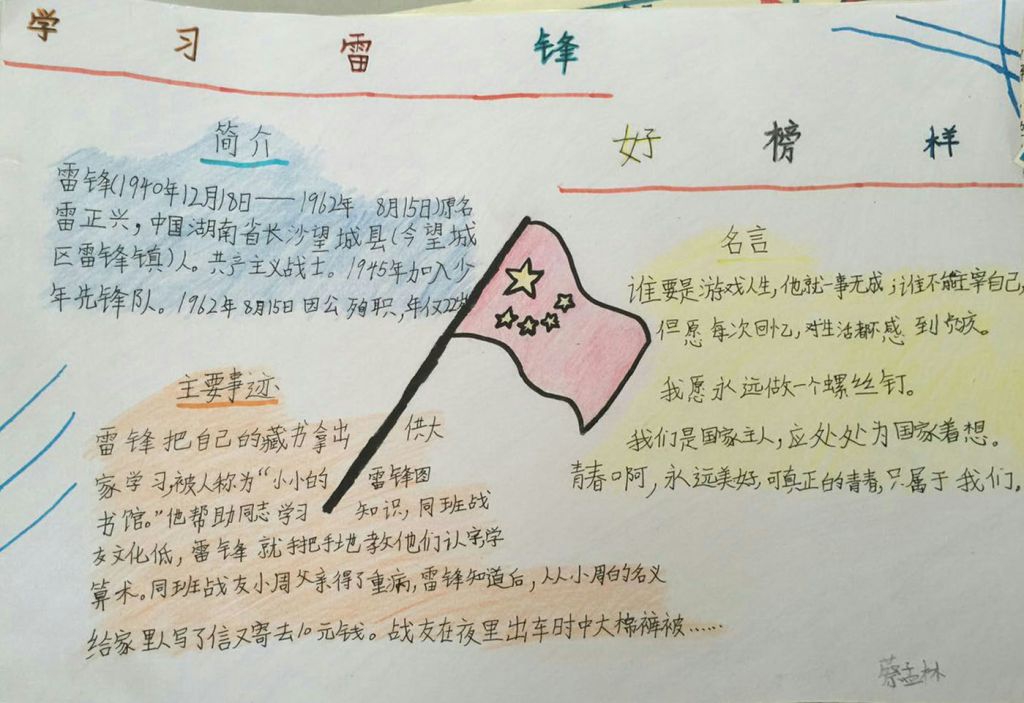 学 习 雷 锋
好 榜 样
简 介
雷锋(1940年12月18日——1962年 8月15日)原名
雷正兴，中国湖南省长沙望城县(今望城
区雷锋镇)人。共产主义战士。1945年加入少
年先锋队。1962年8月15日因公殉职，年仅22岁
主要事迹
雷锋把自己的藏书拿出 供大
家学习，被人称为“小小的 雷锋图
书馆。”他帮助同志学习 知识，同班战
友文化低，雷锋就手把手地教他们认字学
算术。同班战友小周父亲得了重病，雷锋知道后，以小周的名义
给家里人写了信又寄去10元钱。战友在夜里出车时中大棉裤被……
名言
谁要是游戏人生，他就一事无成；谁不能主宰自己，
但愿每次回忆，对生活都不感到负疚。
我愿永远做一个螺丝钉。
我们是国家主人，应处处为国家着想。
青春啊，永远美好，可真正的青春，只属于我们，
蔡孟林